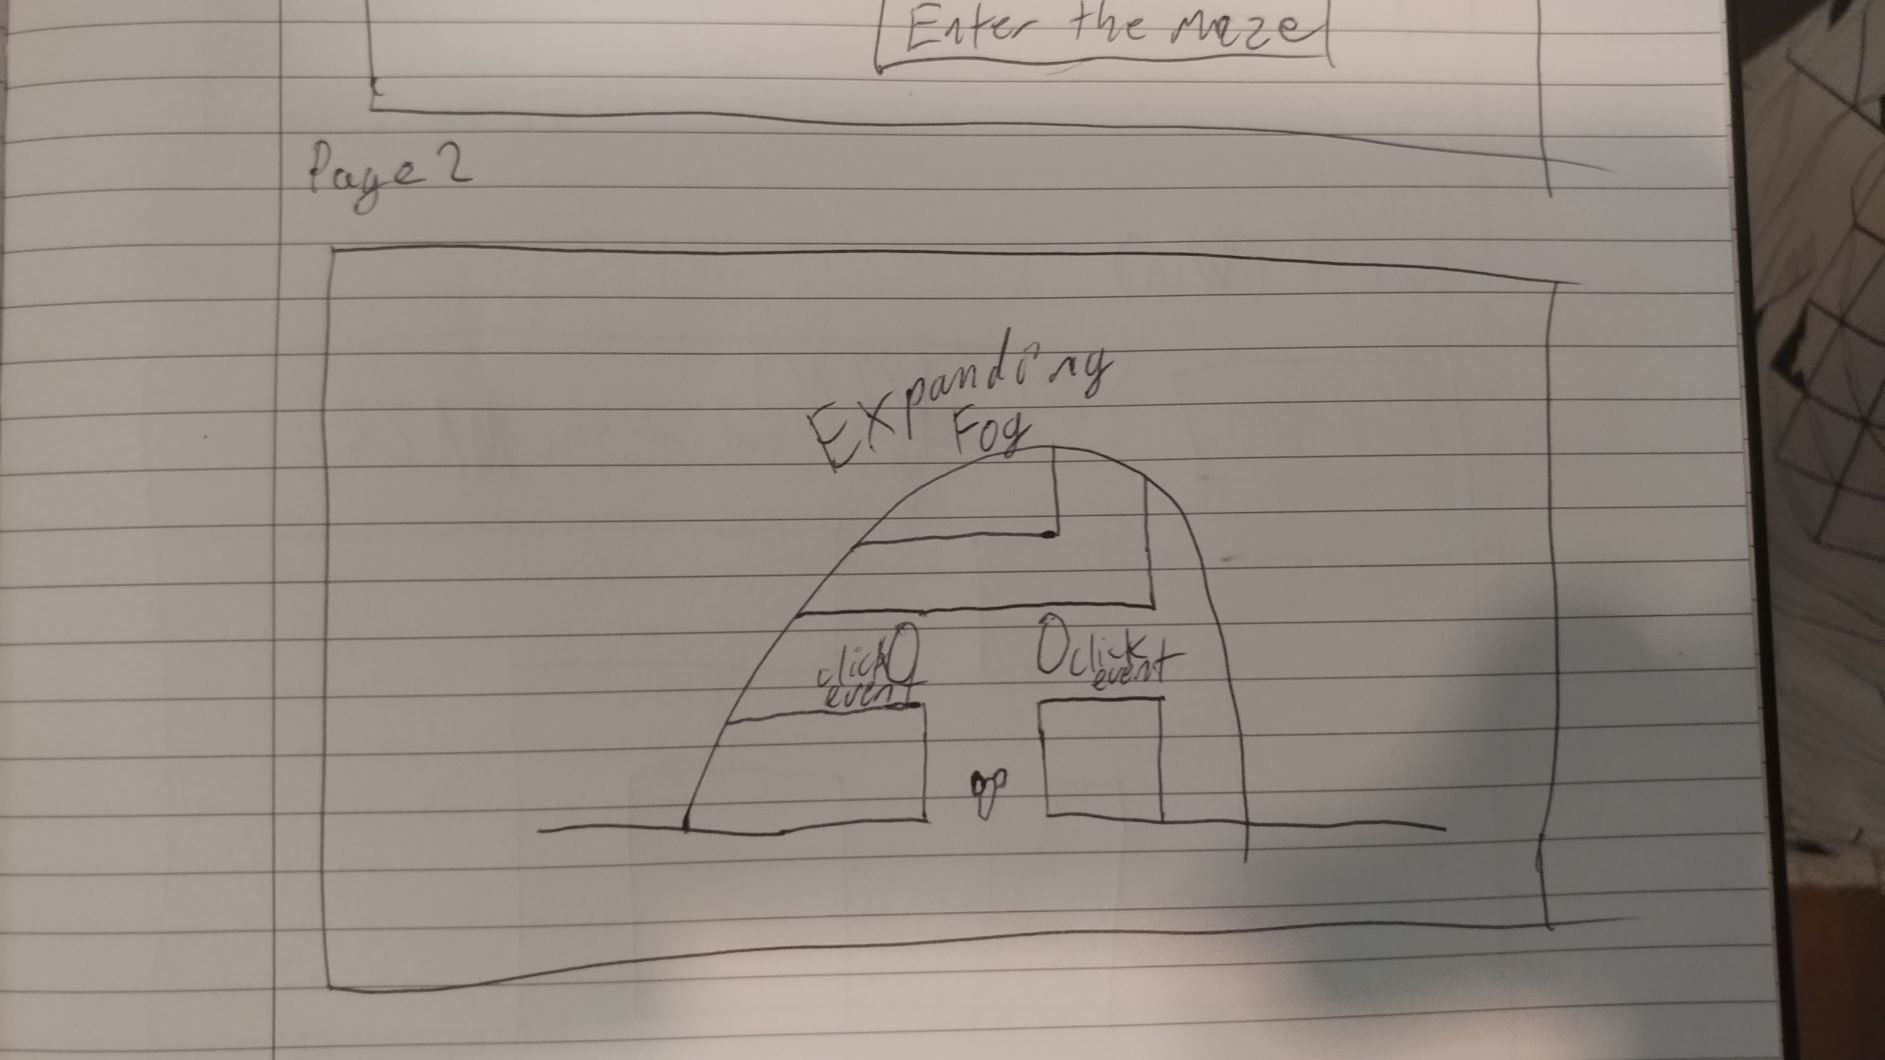 Enter the Maze
Page 2
Expanding
Fog
click
event
click
event